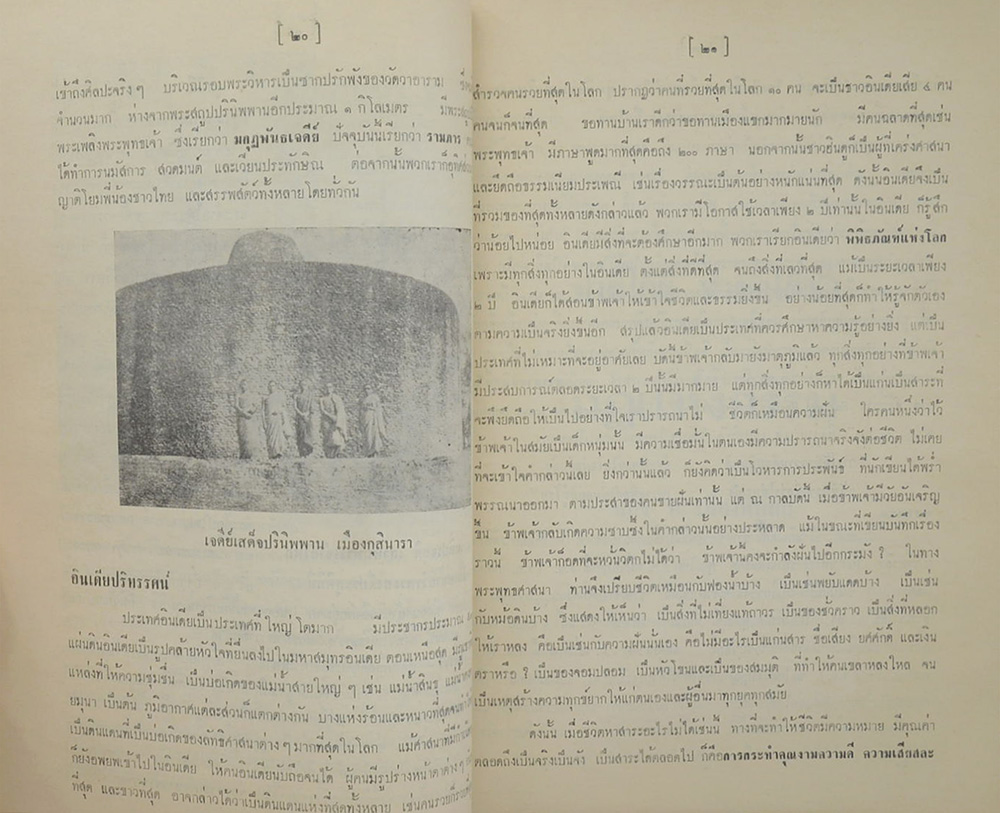 [ ๒๐ ]
เข้าถึงศิลปะจริง ๆ บริเวณรอบพระวิหารเป็นซากปรักพังของวัดวาอาราม
จำนวนมาก ห่างจากพระสถูปปรินิพพานอีกประมาณ ๑ กิโลเมตร
พระเพลิงพระพุทธเจ้า ซึ่งเรียกว่า มกุฏพันธเจดีย์ ปัจจุบันนี้เรียกว่า รามภาร
ได้ทำการนมัสการ สวดมนต์ และเวียนประทักษิณ ต่อจากนั้นพวกเราก็อุทิศส่วน
ญาติโยมพี่น้องชาวไทย และสรรพสัตว์ทั้งหลายโดยทั่วกัน
เจดีย์เสด็จปรินิพพาน เมืองกุสินารา
อินเดียปริทรรศน์
ประเทศอินเดียเป็นประเทศที่ใหญ่โตมาก มีประชากรประมาณ
แผ่นดินอินเดียเป็นรูปคล้ายหัวใจที่ยื่นลงไปในมหาสมุทรอินเดีย ตอนเหนือสุด
แหล่งที่ให้ความชุ่มชื่น เป็นบ่อเกิดของแม่น้ำสายใหญ่ ๆ เช่น แม่น้ำสินธุ
ยมุนา เป็นต้น ภูมิอากาศแต่ละส่วนก็แตกต่างกัน บางแห่งร้อนและหนาวที่สุด
เป็นดินแดนที่เป็นบ่อเกิดของลัทธิศาสนาต่าง ๆ มากที่สุดในโลก แม้ศาสนาที่
ก็ยังอพยพเข้าไปในอินเดีย ให้คนอินเดียนับถือจนได้ ผู้คนมีรูปร่างหน้าตาต่าง ๆ
ที่สุด และขาวที่สุด อาจกล่าวได้ว่าเป็นดินแดนแห่งที่สุดทั้งหลาย
[ ๒๑ ]
สำรวจคนรวยที่สุดในโลก ปรากฏว่าคนที่รวยที่สุดในโลก ๑๐ คน จะเป็นชาวอินเดียเสีย ๔ คน
คนจนก็จนที่สุด ขอทานบ้านเราดีกว่าขอทานเมืองแขกมากมายนัก มีคนฉลาดที่สุดเช่น
พระพุทธเจ้า มีภาษาพูดมากที่สุดคือถึง ๒๐๐ ภาษา นอกจากนั้นชาวฮินดูก็เป็นผู้ที่เคร่งศาสนา
และยึดถือธรรมเนียมประเพณี เช่นเรื่องวรรณะเป็นต้นอย่างหนักแน่นที่สุด ดังนั้นอินเดียจึงเป็น
ที่รวมของที่สุดทั้งหลายดังกล่าวแล้ว พวกเรามีโอกาสใช้เวลาเพียง ๒ ปีเท่านั้นในอินเดีย ก็รู้สึก
ว่าน้อยไปหน่อย อินเดียมีสิ่งที่จะต้องศึกษาอีกมาก พวกเราเรียกอินเดียว่า พิพิธภัณฑ์แห่งโลก
เพราะมีทุกสิ่งทุกอย่างในอินเดีย ตั้งแต่สิ่งที่ดีที่สุด จนถึงสิ่งที่เลวที่สุด แม้เป็นระยะเวลาเพียง
๒ ปี อินเดียก็ได้สอนข้าพเจ้าให้เข้าใจชีวิตและธรรมยิ่งขึ้น อย่างน้อยที่สุดก็ทำให้รู้จักตัวเอง
ตามความเป็นจริงยิ่งขึ้นอีก สรุปแล้วอินเดียเป็นประเทศที่ควรศึกษาหาความรู้อย่างยิ่ง แต่เป็น
ประเทศที่ไม่เหมาะที่จะอยู่อาศัยเลย บัดนี้ข้าพเจ้ากลับมายังมาตุภูมิแล้ว ทุกสิ่งทุกอย่างที่ข้าพเจ้า
มีประสบการณ์ตลอดระยะเวลา ๒ ปีนั้นมีมากมาย แต่ทุกสิ่งทุกอย่างก็หาได้เป็นแก่นเป็นสาระที่
จะพึงยึดถือให้เป็นไปอย่างที่ใจเราปรารถนาไม่ ชีวิตก็เหมือนความฝัน ใครคนหนึ่งว่าไว้
ข้าพเจ้าในสมัยเป็นเด็กหนุ่มนั้น มีความเชื่อมั่นในตนเองมีความปรารถนาจริงจังต่อชีวิต ไม่เคย
ที่จะเข้าใจคำกล่าวนั้นเลย ยิ่งกว่านั้นแล้ว ก็ยังคิดว่าเป็นโวหารการประพันธ์ ที่นักเขียนได้พร่ำ
พรรณนาออกมา ตามประสาของคนขายฝันเท่านั้น แต่ ณ กาลบัดนี้ เมื่อข้าพเจ้ามีวัยอันเจริญ
ขึ้น ข้าพเจ้ากลับเกิดความซาบซึ้งในคำกล่าวนั้นอย่างประหลาด แม้ในขณะที่เขียนบันทึกเรื่อง
ราวนี้ ข้าพเจ้าก็อดที่จะหวั่นวิตกไม่ได้ว่า ข้าพเจ้านี้คงจะกำลังฝันไปอีกกระมัง ? ในทาง
พระพุทธศาสนา ท่านจึงเปรียบชีวิตเหมือนกับฟองน้ำบ้าง เป็นเช่นพยับแดดบ้าง เป็นเช่น
กับหม้อดินบ้าง ซึ่งแสดงให้เห็นว่า เป็นสิ่งที่ไม่เที่ยงแท้ถาวร เป็นของชั่วคราว เป็นสิ่งที่หลอก
ให้เราหลง คือเป็นเช่นกับความฝันนั้นเอง คือไม่มีอะไรเป็นแก่นสาร ชื่อเสียง ยศศักดิ์ และเงิน
ตราหรือ ? เป็นของจอมปลอม เป็นหัวโขนและเป็นของสมมุติ ที่ทำให้คนเขลาหลงใหล จน
เป็นเหตุสร้างความทุกข์ยากให้แก่ตนเองและผู้อื่นมาทุกยุคทุกสมัย
ดังนั้น เมื่อชีวิตหาสาระอะไรไม่ได้เช่นนี้ ทางที่จะทำให้ชีวิตมีความหมาย มีคุณค่า
ตลอดถึงเป็นจริงเป็นจัง เป็นสาระได้ตลอดไป ก็คือการกระทำคุณงามความดี ความเสียสละ